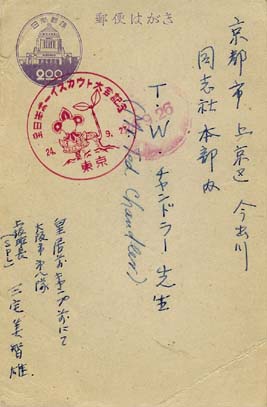 郵便はがき
日本郵便
2.00
全日本ボーイスカウト大会記念
24.9.23
東京
京都市上京区今出川
同志社本部内
T.W.チャンドラー先生
皇居前
大阪市第八隊
三宅美智雄